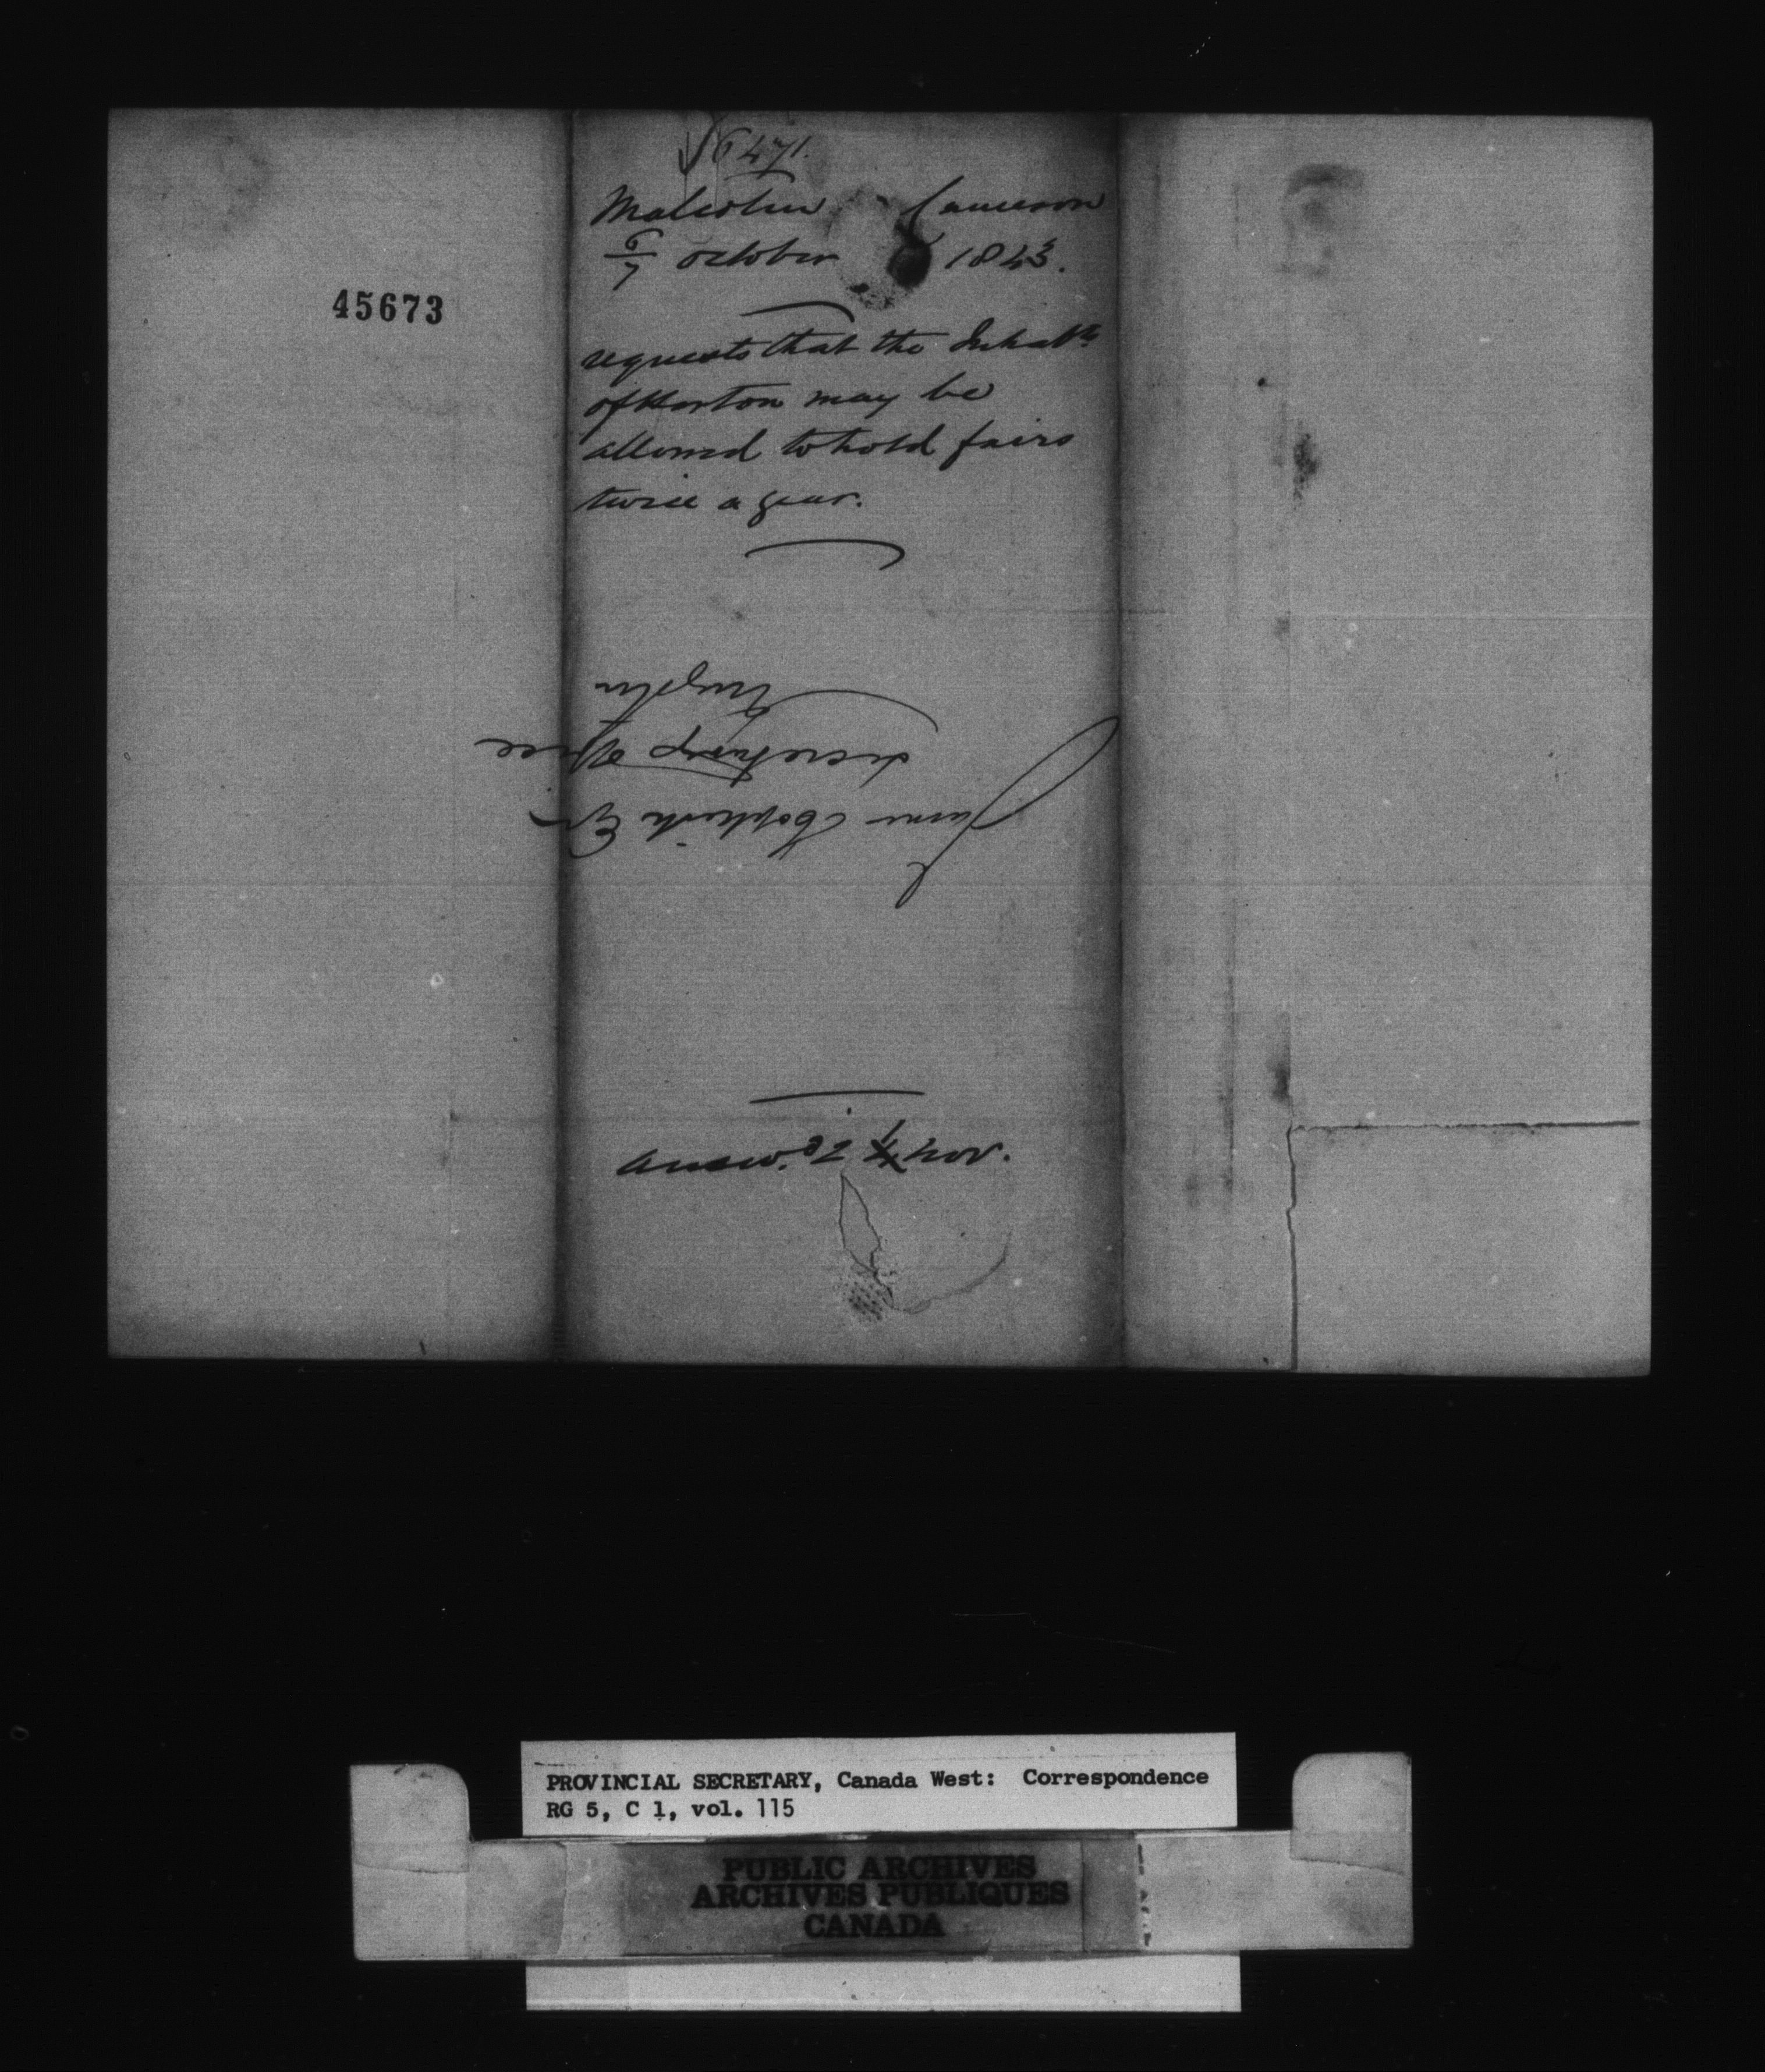 6471.
Malcolm Cameron
6/7 October 1843.
45673
requests that the Inhabts
of Horton may be
allowed to hold fairs
twice a year.
James Hopkirk Esqr
Secretarys Office
Kingston
Answd 2 Nov.
PROVINCIAL SECRETARY, Canada West: Correspondence
RG 5, C 1, vol. 115
PUBLIC ARCHIVES
ARCHIVES PUBLIQUES
CANADA